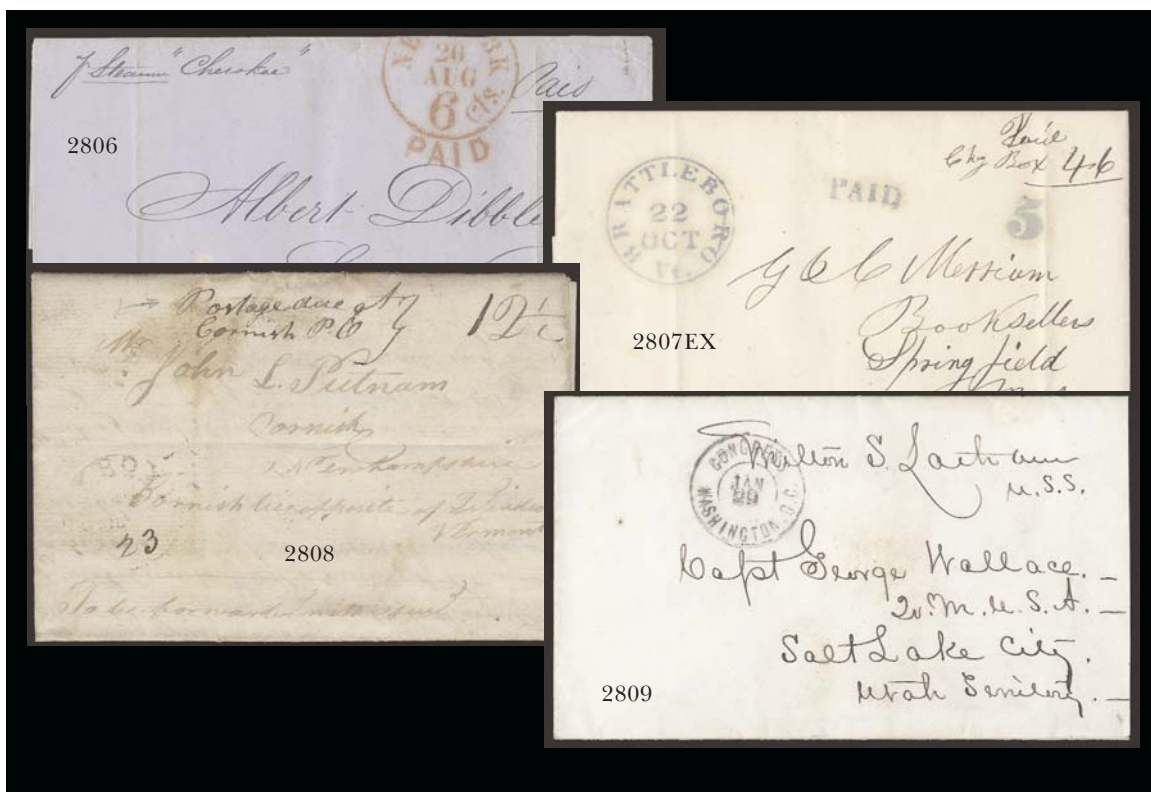 Steamer "Cherokee"
NEW YORK
26
AUG
6 cts
PAID
Paid
2806
Albert Dibble
Paid
Chg Box 46
BRATTLEBORO
22
OCT
Vt.
PAID
5
G & C Merriam
Booksellers
Springfield
2807EX
Postage due at
Cornish P.O
12½
Mr
John L. Putnam
Cornish
Newhampshire
Cornish lies opposite of
Vermont
23
2808
To be forwarded with
CONGRESS
JAN
29
WASHINGTON, D.C.
Milton S. Latham
U.S.S.
Capt George Wallace.
U.S.A.
Salt Lake City.
Utah Territory.
2809